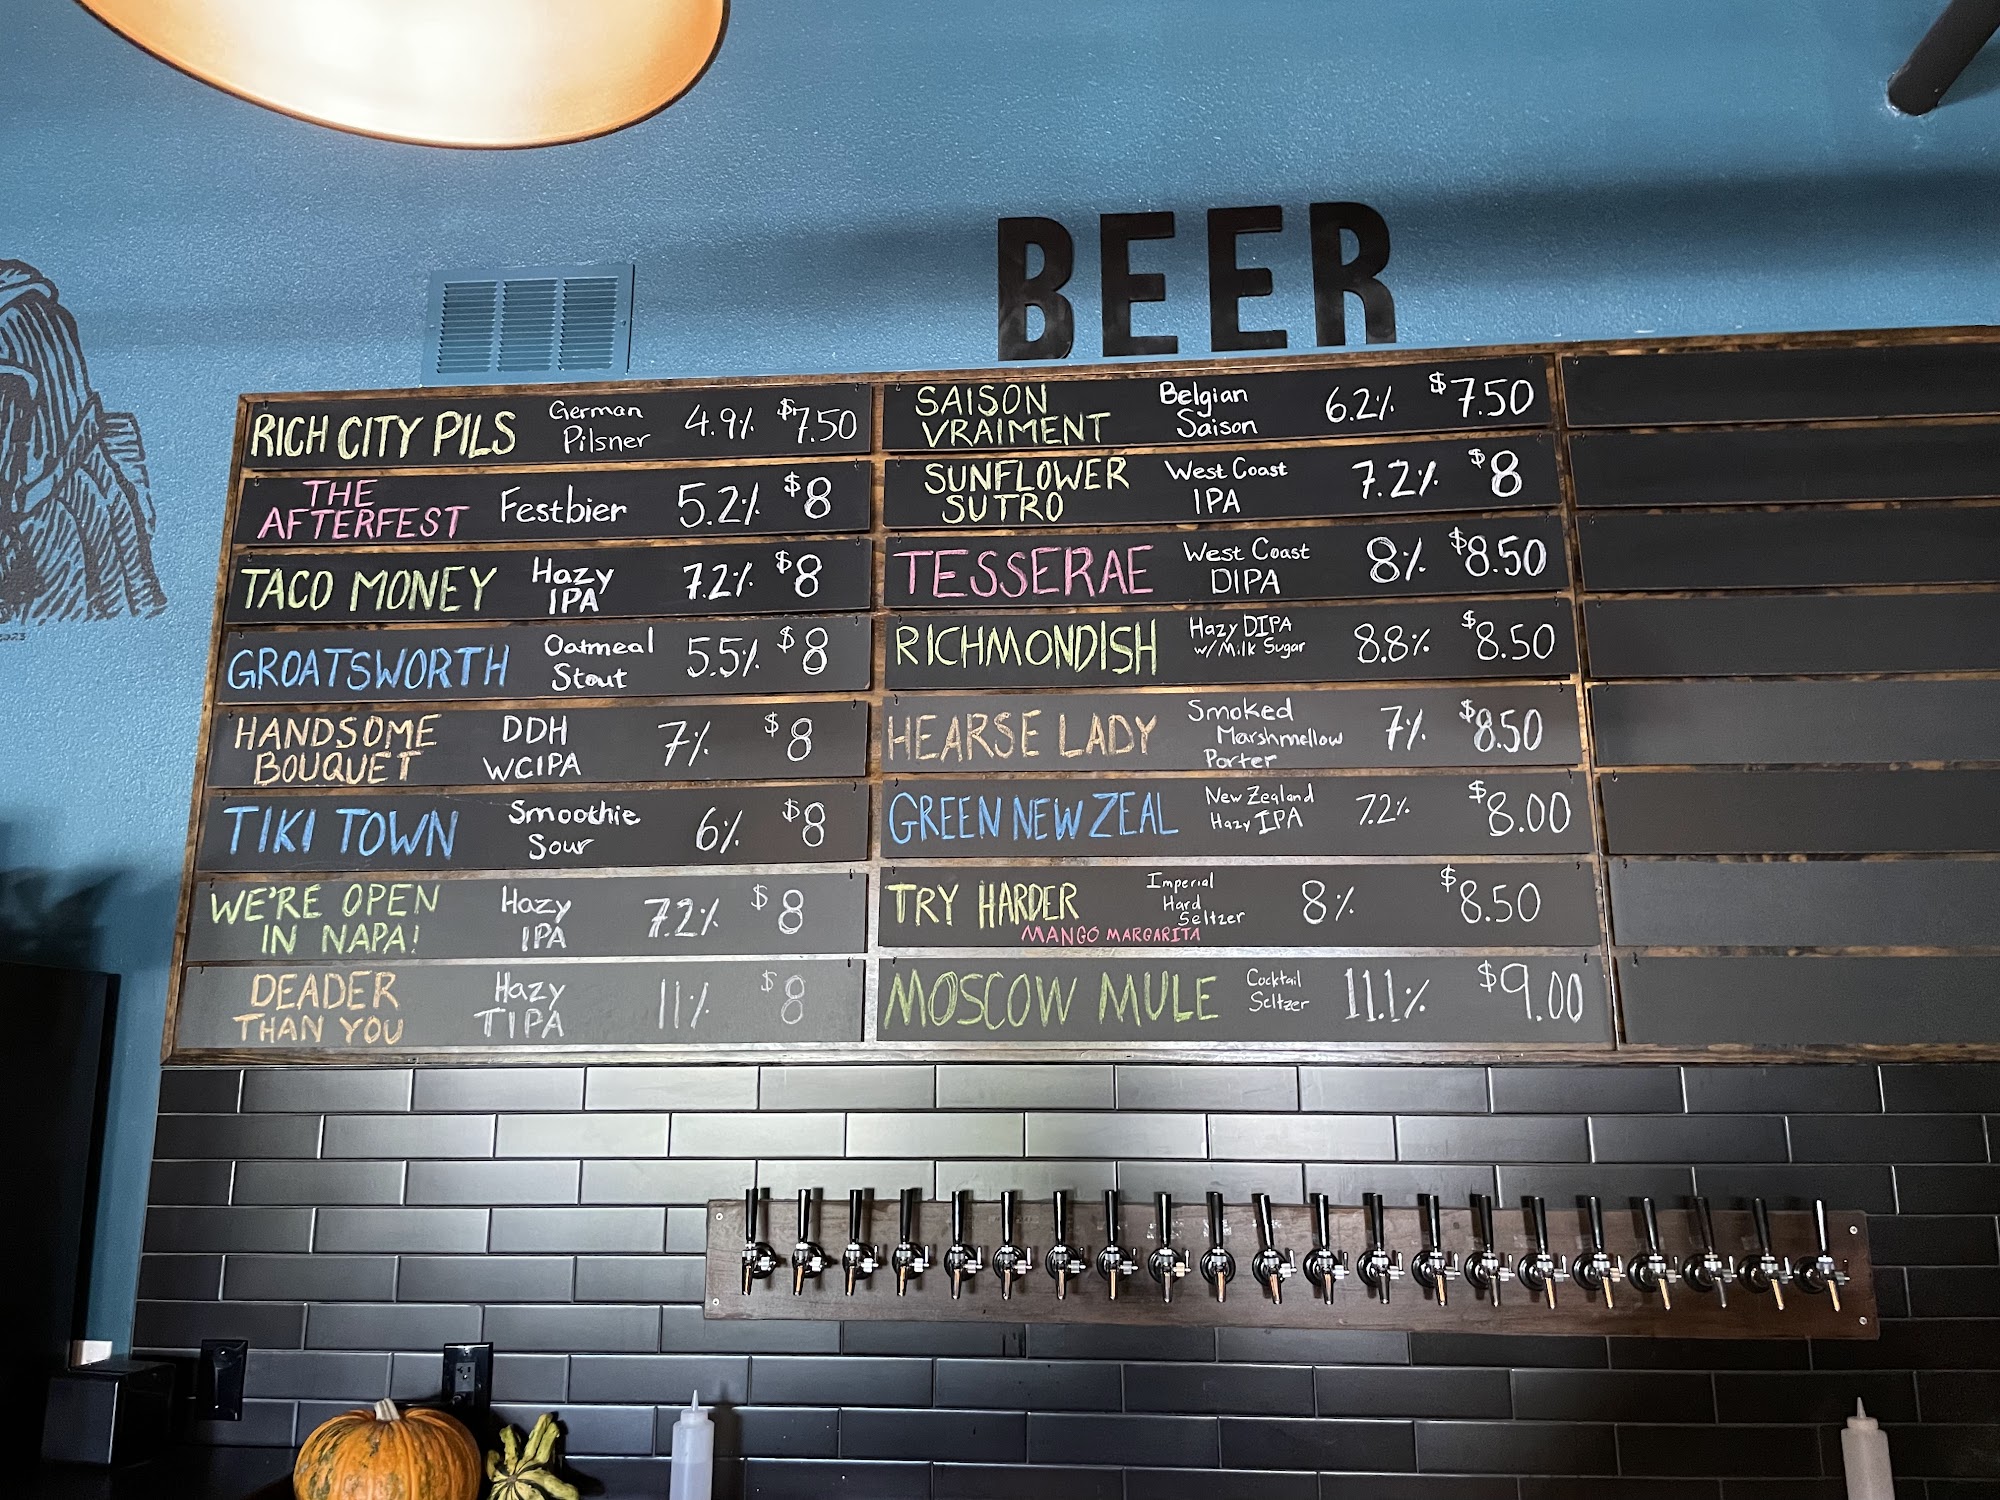 BEER
RICH CITY PILS German Pilsner 4.9% $7.50
THE AFTERFEST Festbier 5.2% $8
TACO MONEY Hazy IPA 7.2% $8
GROATSWORTH Oatmeal Stout 5.5% $8
HANDSOME BOUQUET DDH WCIPA 7% $8
TIKI TOWN Smoothie Sour 6% $8
WE'RE OPEN IN NAPA! Hazy IPA 7.2% $8
DEADER THAN YOU Hazy TIPA 11% $8
SAISON VRAIMENT Belgian Saison 6.2% $7.50
SUNFLOWER SUTRO West Coast IPA 7.2% $8
TESSERAE West Coast DIPA 8% $8.50
RICHMONDISH Hazy DIPA w/ Milk Sugar 8.8% $8.50
HEARSE LADY Smoked Marshmellow Porter 7% $8.50
GREEN NEW ZEAL New Zealand Hazy IPA 7.2% $8.00
TRY HARDER Imperial Hard Seltzer 8% $8.50
MANGO MARGARITA
MOSCOW MULE Cocktail Seltzer 11.1% $9.00
2023